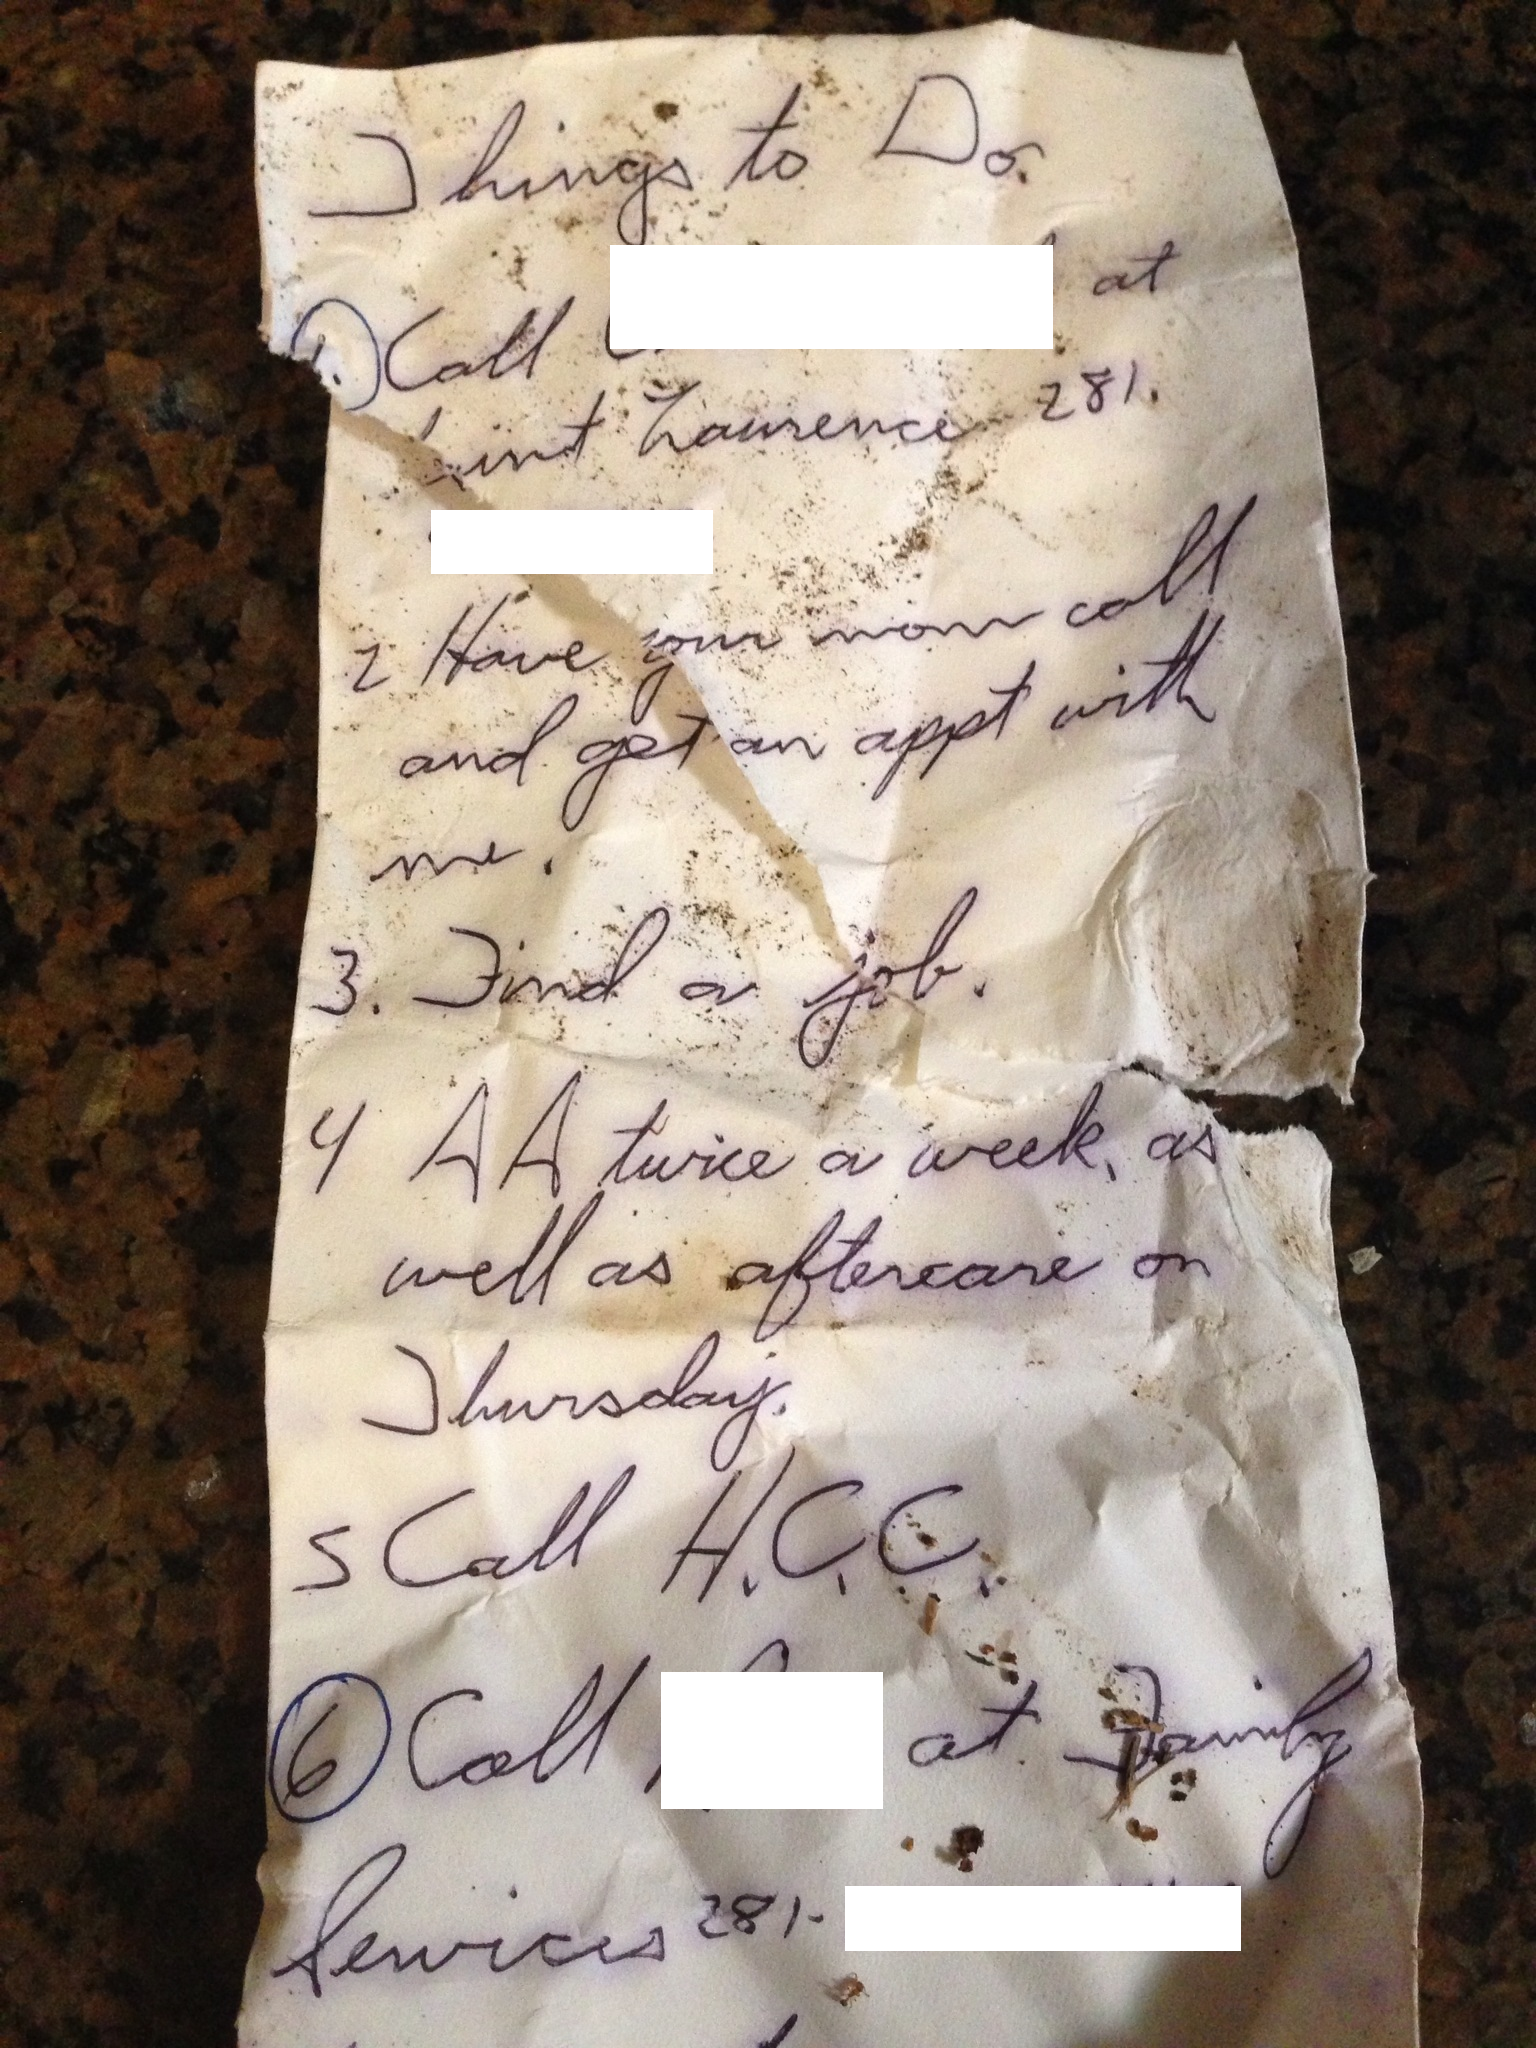 Things to Do.
1. Call at
Saint Lawrence 281.
2 Have your mom call
and get an appt with
me.
3. Find a job.
4 AA twice a week, as
well as aftercare on
Thursday.
5 Call H.C.C.
6 Call at Family
Services 281-